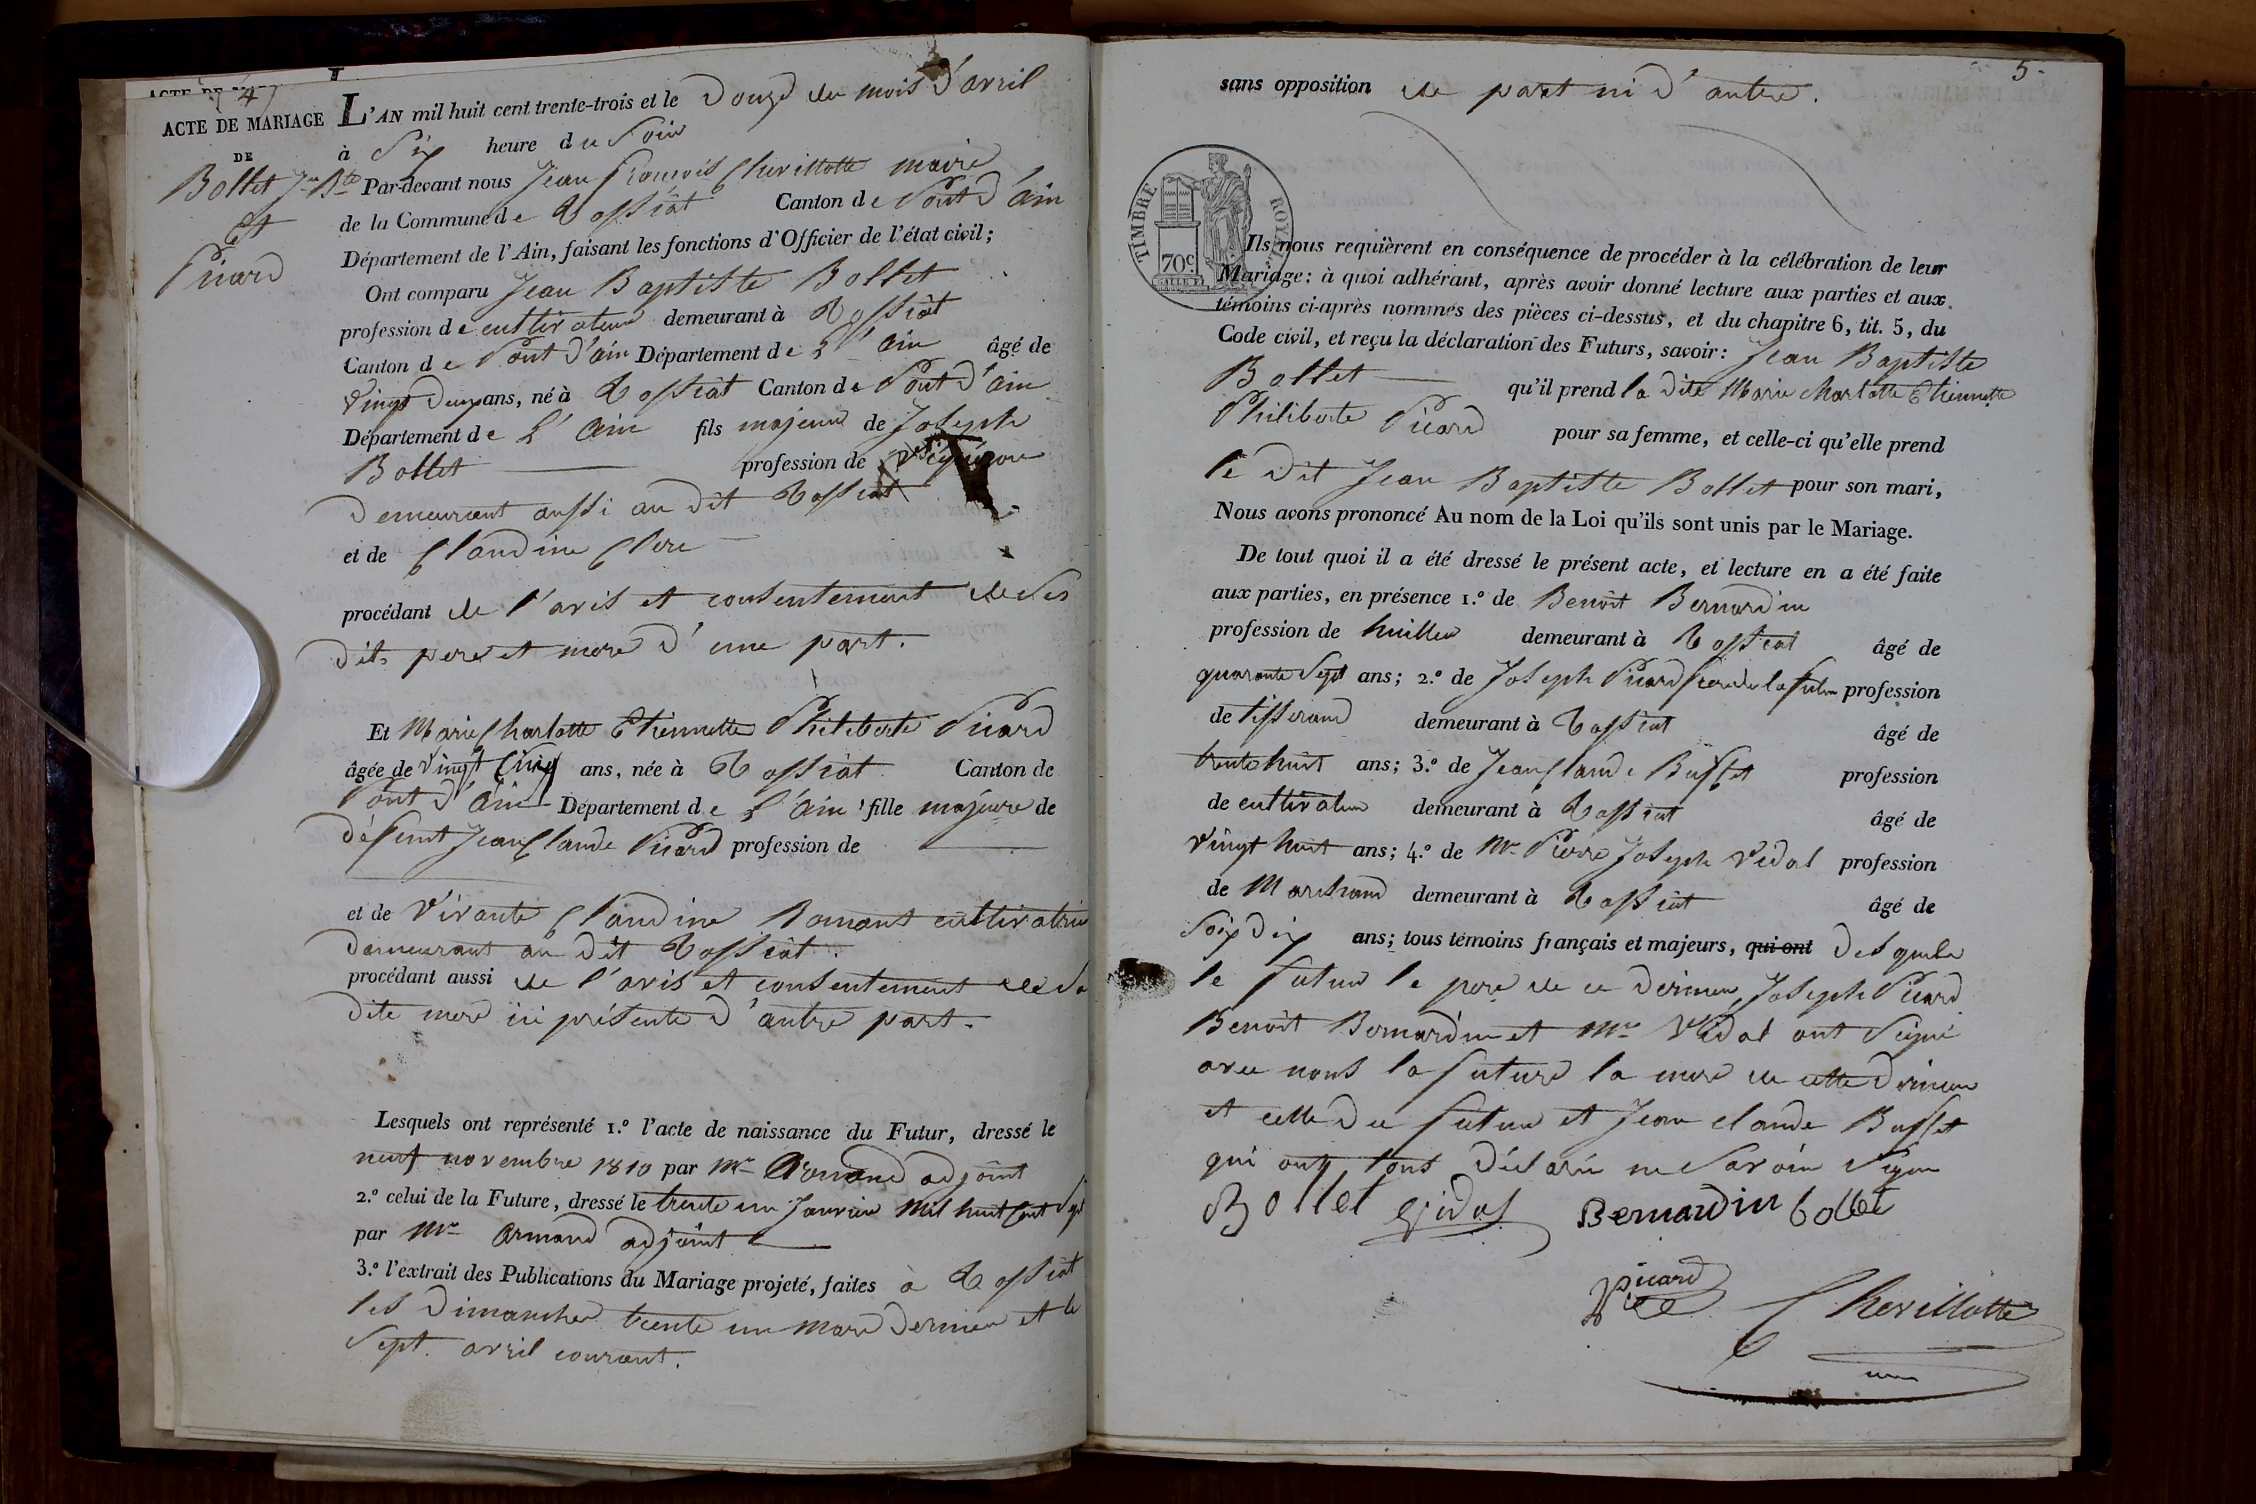 4
ACTE DE MARIAGE
DE
Bollet Jn Bte
Et
Picard
L'AN mil huit cent trente-trois et le Douze du mois d'avril
à Six heure du Soir
Par-devant nous Jean François Chevillotte maire
de la Commune de Tossiat Canton de Pont d'ain
Département de l'Ain, faisant les fonctions d'Officier de l'état civil;
Ont comparu Jean Baptiste Bollet
profession de cultivateur demeurant à Tossiat
Canton de Pont d'ain Département de L'ain âgé de
Vingt Deux ans, né à Tossiat Canton de Pont d'ain
Département de L'ain fils majeur de Joseph
Bollet profession de Vigneron
Demeurant aussi au dit Tossiat
et de Claudine Clere
procédant de l'avis et consentement de ses
dits pere et mere d'une part.
Et Marie Charlotte Etiennette Philiberte Picard
âgée de Vingt Cinq ans, née à Tossiat Canton de
Pont d'ain Département de L'ain fille majeure de
défunt Jean Claude Picard profession de
et de Vivante Claudine Romans cultivatrice
demeurant au dit Tossiat.
procédant aussi de l'avis et consentement de sa
dite mere ici présente d'autre part.
Lesquels ont représenté 1.º l'acte de naissance du Futur, dressé le
neuf novembre 1810 par Mr Armand adjoint
2.º celui de la Future, dressé le trente un Janvier mil huit Cent Sept
par Mr Armand adjoint
3.º l'extrait des Publications du Mariage projeté, faites à Tossiat
les Dimanches trente un mars dernier et le
Sept avril courant.
5
sans opposition de part ni d'autre.
TIMBRE ROYAL
70 c.
Ils nous requièrent en conséquence de procéder à la célébration de leur
Mariage: à quoi adhérant, après avoir donné lecture aux parties et aux
témoins ci-après nommés des pièces ci-dessus, et du chapitre 6, tit. 5, du
Code civil, et reçu la déclaration des Futurs, savoir: Jean Baptiste
Bollet qu'il prend la dite Marie Charlotte Etiennette
Philiberte Picard pour sa femme, et celle-ci qu'elle prend
le dit Jean Baptiste Bollet pour son mari,
Nous avons prononcé Au nom de la Loi qu'ils sont unis par le Mariage.
De tout quoi il a été dressé le présent acte, et lecture en a été faite
aux parties, en présence 1.º de Benoit Bernardin
profession de huillier demeurant à Tossiat âgé de
quarante Sept ans; 2.º de Joseph Picard frere de la future profession
de tisserand demeurant à Tossiat âgé de
trente huit ans; 3.º de Jean Claude Buffet profession
de cultivateur demeurant à Tossiat âgé de
Vingt huit ans; 4.º de Mr Pierre Joseph Vidal profession
de Marchand demeurant à Tossiat âgé de
Soix dix ans; tous témoins français et majeurs, qui ont desquels
le futur le pere de ce dernier Joseph Picard
Benoit Bernardin et Mr Vidal ont signé
avec nous la future la mere de cette derniere
et celle du futur et Jean claude Buffet
qui ont tous déclaré ne Savoir Signer
Bollet Vidal Bernardin bollet
Picard
Chevillotte